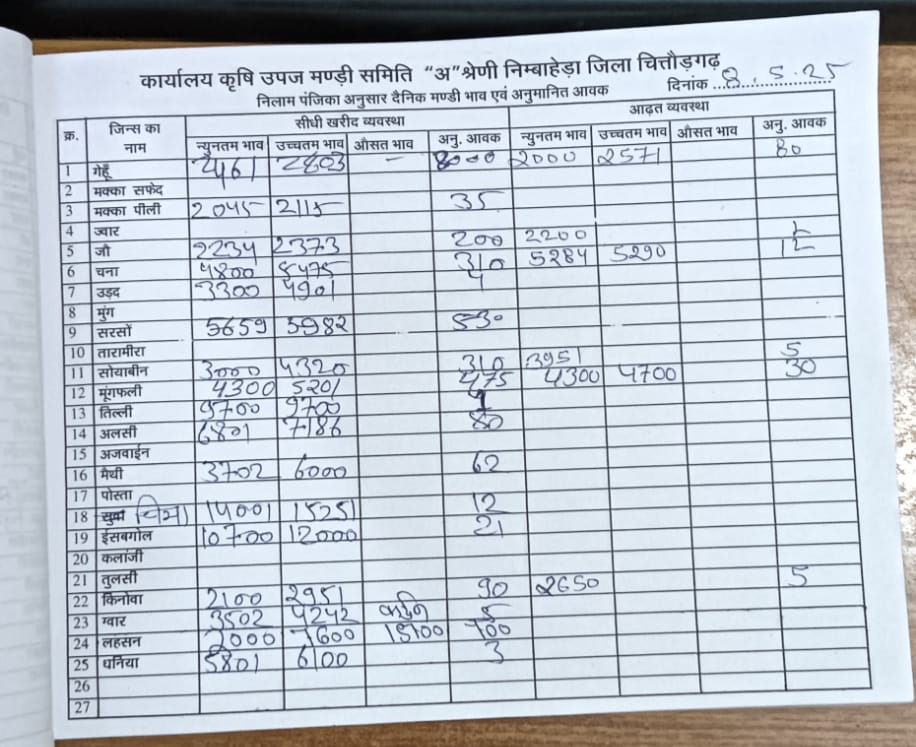 कार्यालय कृषि उपज मण्ड़ी समिति "अ"श्रेणी निम्बाहेड़ा जिला चित्तौड़गढ़
निलाम पंजिका अनुसार दैनिक मण्डी भाव एवं अनुमानित आवक दिनांक 8.5.25
क्र. जिन्स का नाम सीधी खरीद व्यवस्था आढ़त व्यवस्था
न्युनतम भाव उच्चतम भाव औसत भाव अनु. आवक न्युनतम भाव उच्चतम भाव औसत भाव अनु. आवक
1 गेहूँ 2461 2803 - 8000 2000 2571 80
2 मक्का सफेद
3 मक्का पीली 2045 2115 35
4 ज्वार
5 जौ 2234 2373 200 2200 1
6 चना 4800 5475 310 5284 5290 12
7 उड़द 3300 4901 4
8 मुंग
9 सरसों 5659 5982 530
10 तारामीरा
11 सोयाबीन 3000 4320 310 3951 5
12 मूंगफली 4300 5201 475 4300 4700 30
13 तिल्ली 9700 9700
14 अलसी 6801 7186 80
15 अजवाईन
16 मैथी 3702 6000 62
17 पोस्ता
18 सुवा चिया 14001 15251 12
19 ईसबगोल 10700 12000 21
20 कलांजी
21 तुलसी
22 किनोवा 2100 2951 90 2650 5
23 ग्वार 3502 4242 5
24 लहसन 2000 7600 15100 700
25 धनिया 5801 6100 3
26
27